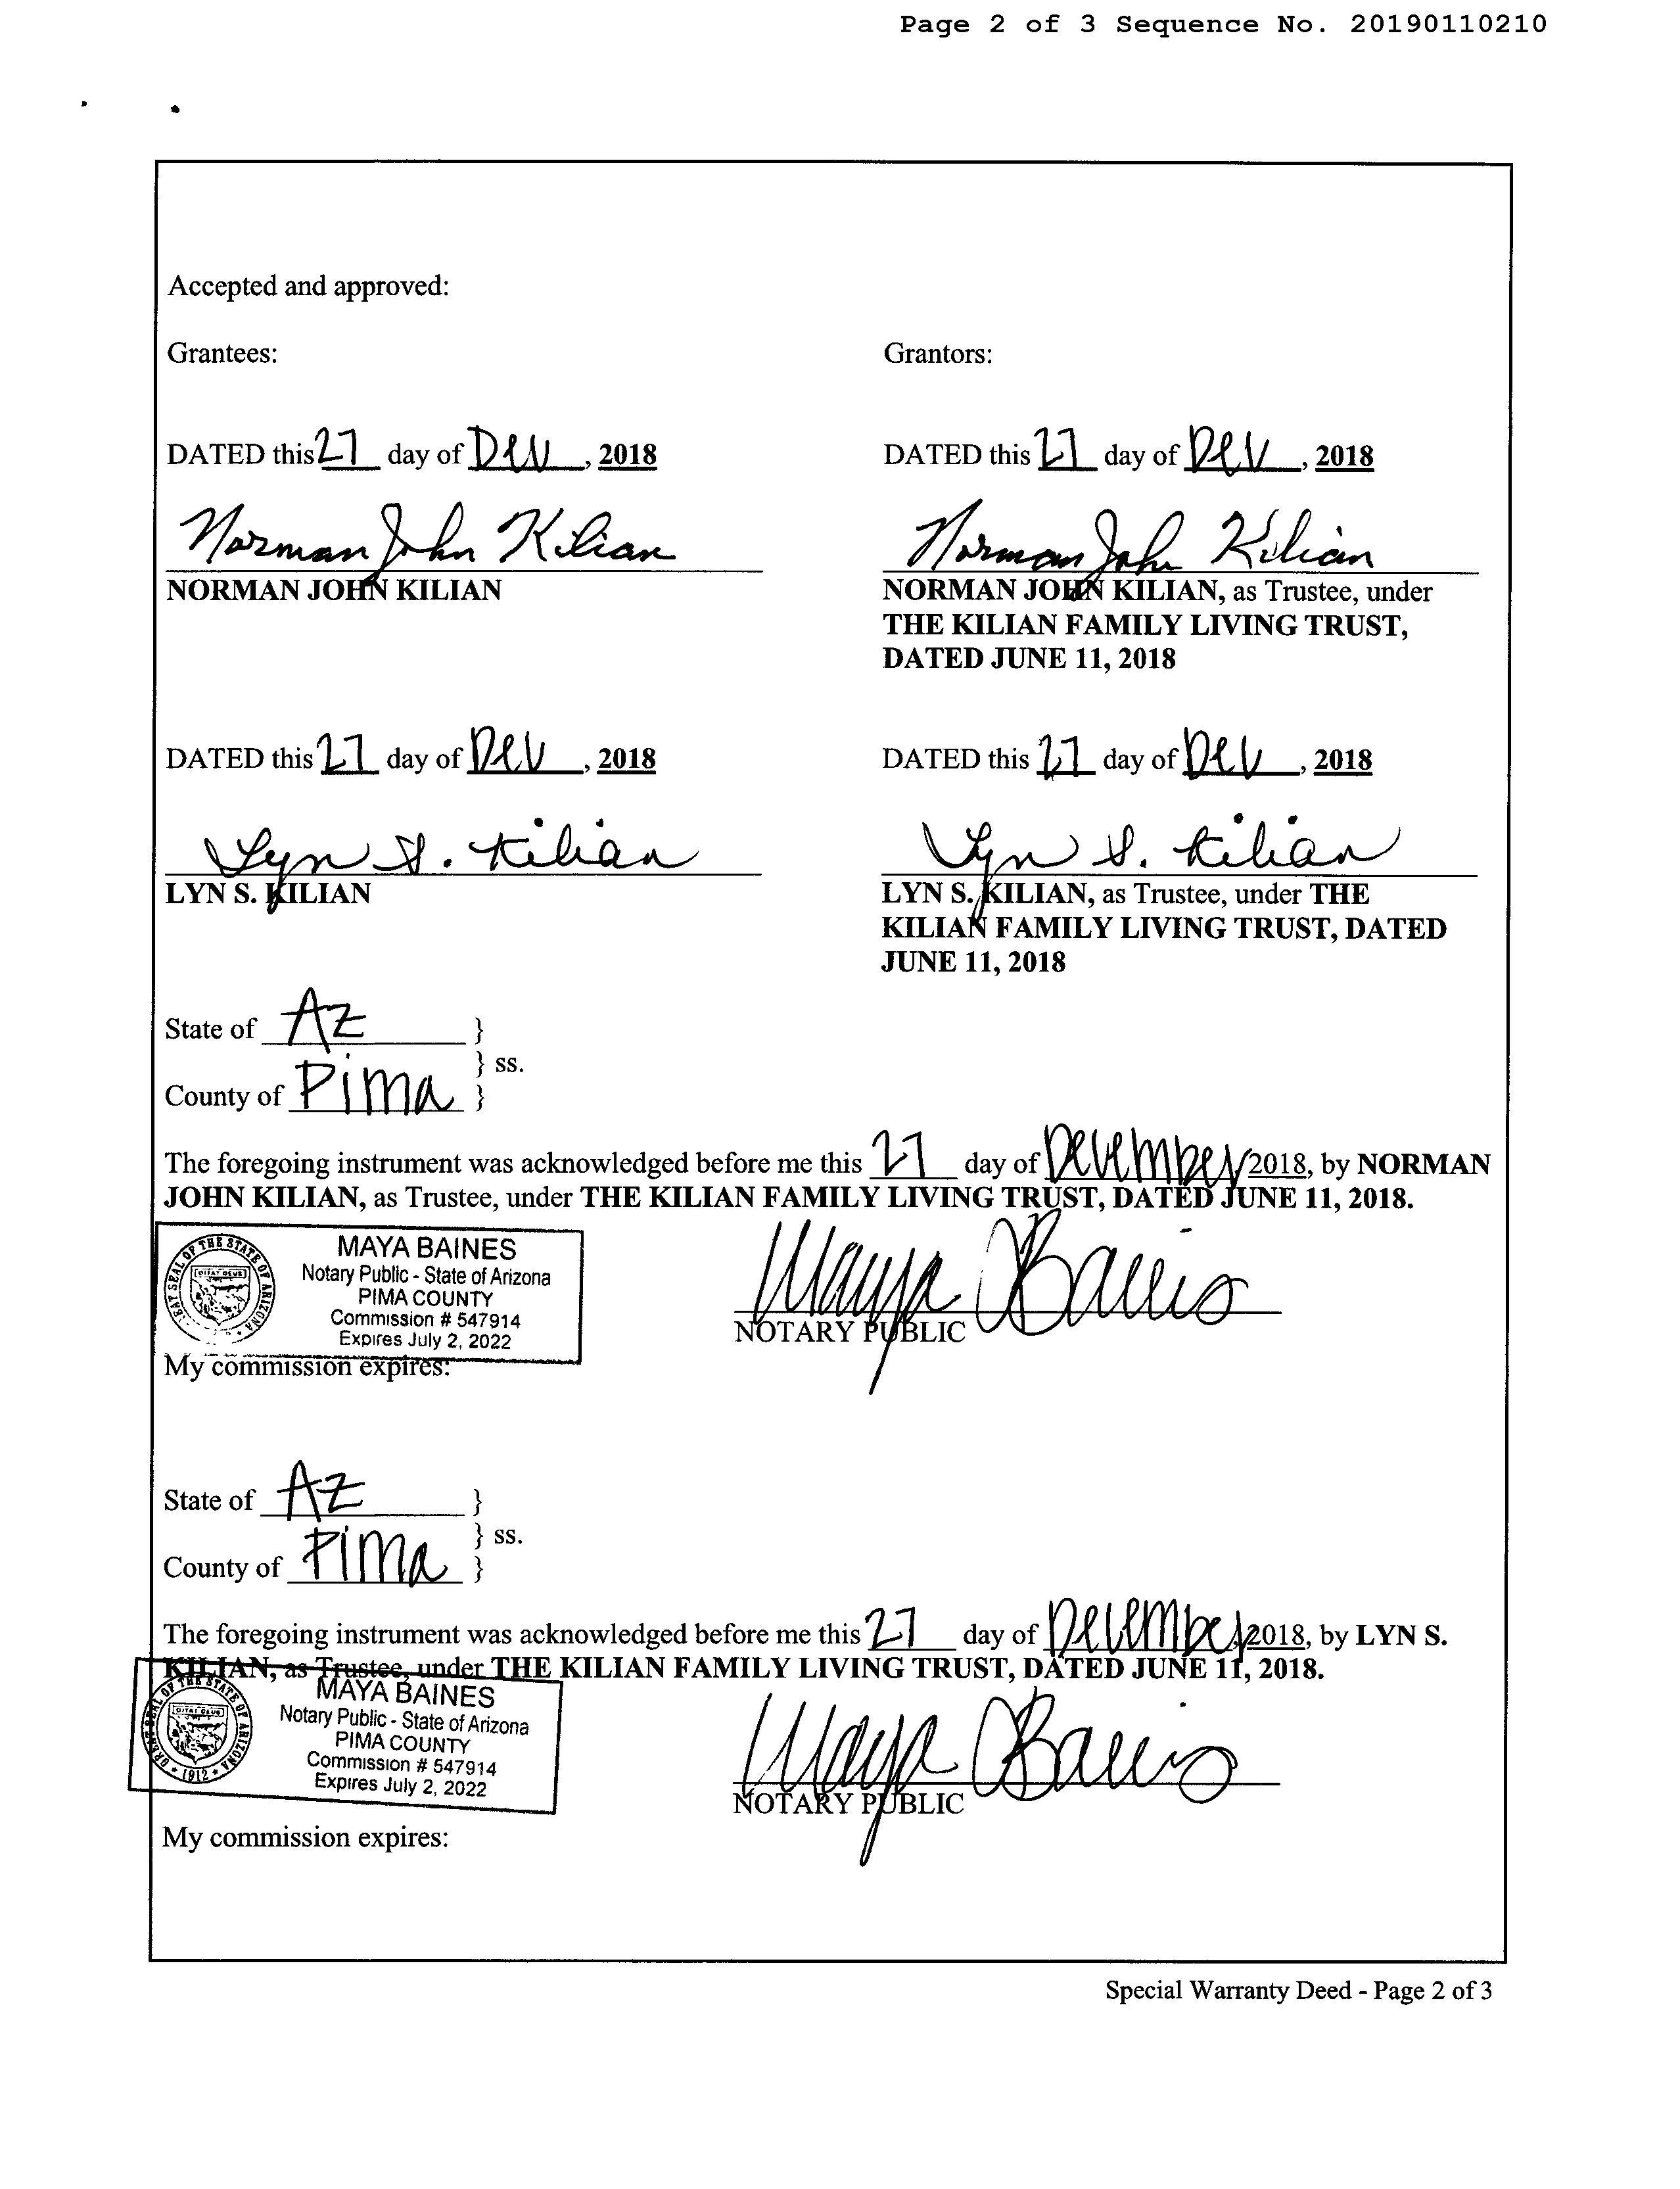 Page 2 of 3 Sequence No. 20190110210
Accepted and approved:
Grantees: Grantors:
DATED this 27 day of Dec, 2018 DATED this 27 day of Dec, 2018
Norman John Kilian Norman John Kilian
NORMAN JOHN KILIAN NORMAN JOHN KILIAN, as Trustee, under
THE KILIAN FAMILY LIVING TRUST,
DATED JUNE 11, 2018
DATED this 27 day of Dec, 2018 DATED this 27 day of Dec, 2018
Lyn S. Kilian Lyn S. Kilian
LYN S. KILIAN LYN S. KILIAN, as Trustee, under THE
KILIAN FAMILY LIVING TRUST, DATED
JUNE 11, 2018
State of AZ }
} ss.
County of Pima }
The foregoing instrument was acknowledged before me this 27 day of December, 2018, by NORMAN
JOHN KILIAN, as Trustee, under THE KILIAN FAMILY LIVING TRUST, DATED JUNE 11, 2018.
MAYA BAINES
Notary Public - State of Arizona
PIMA COUNTY
Commission # 547914
Expires July 2, 2022
SEAL OF THE STATE OF ARIZONA
DITAT DEUS
Maya Baines
NOTARY PUBLIC
My commission expires:
State of AZ }
} ss.
County of Pima }
The foregoing instrument was acknowledged before me this 27 day of December, 2018, by LYN S.
KILIAN, as Trustee, under THE KILIAN FAMILY LIVING TRUST, DATED JUNE 11, 2018.
MAYA BAINES
Notary Public - State of Arizona
PIMA COUNTY
Commission # 547914
Expires July 2, 2022
GREAT SEAL OF THE STATE OF ARIZONA
DITAT DEUS
1912
Maya Baines
NOTARY PUBLIC
My commission expires:
Special Warranty Deed - Page 2 of 3